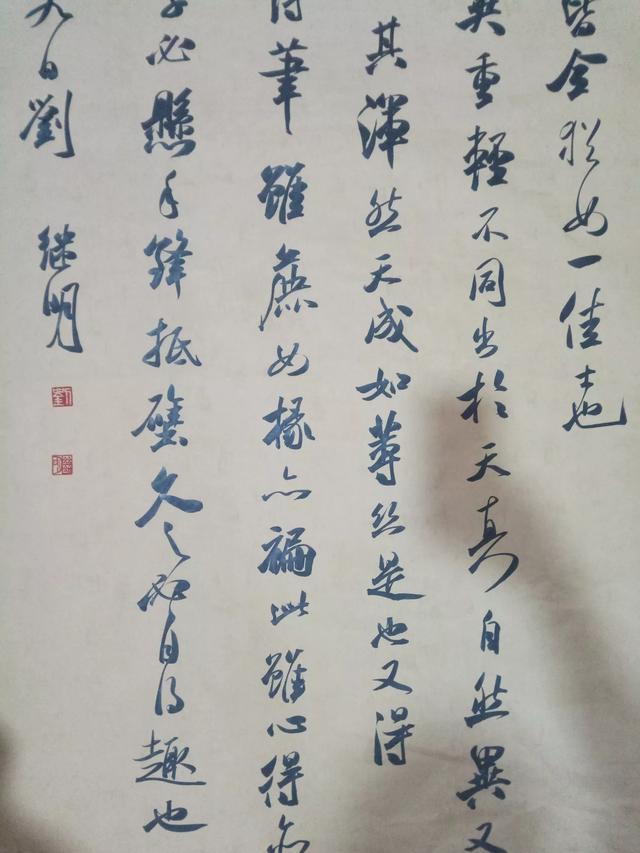 皆全猶如一佳士也
異重輕不同出於天真自然異又
其渾然天成如蓴絲是也又得
得筆雖麁如椽亦褊此雖心得亦
字必懸手鋒抵壁久之必自得趣也
日劉继明
劉